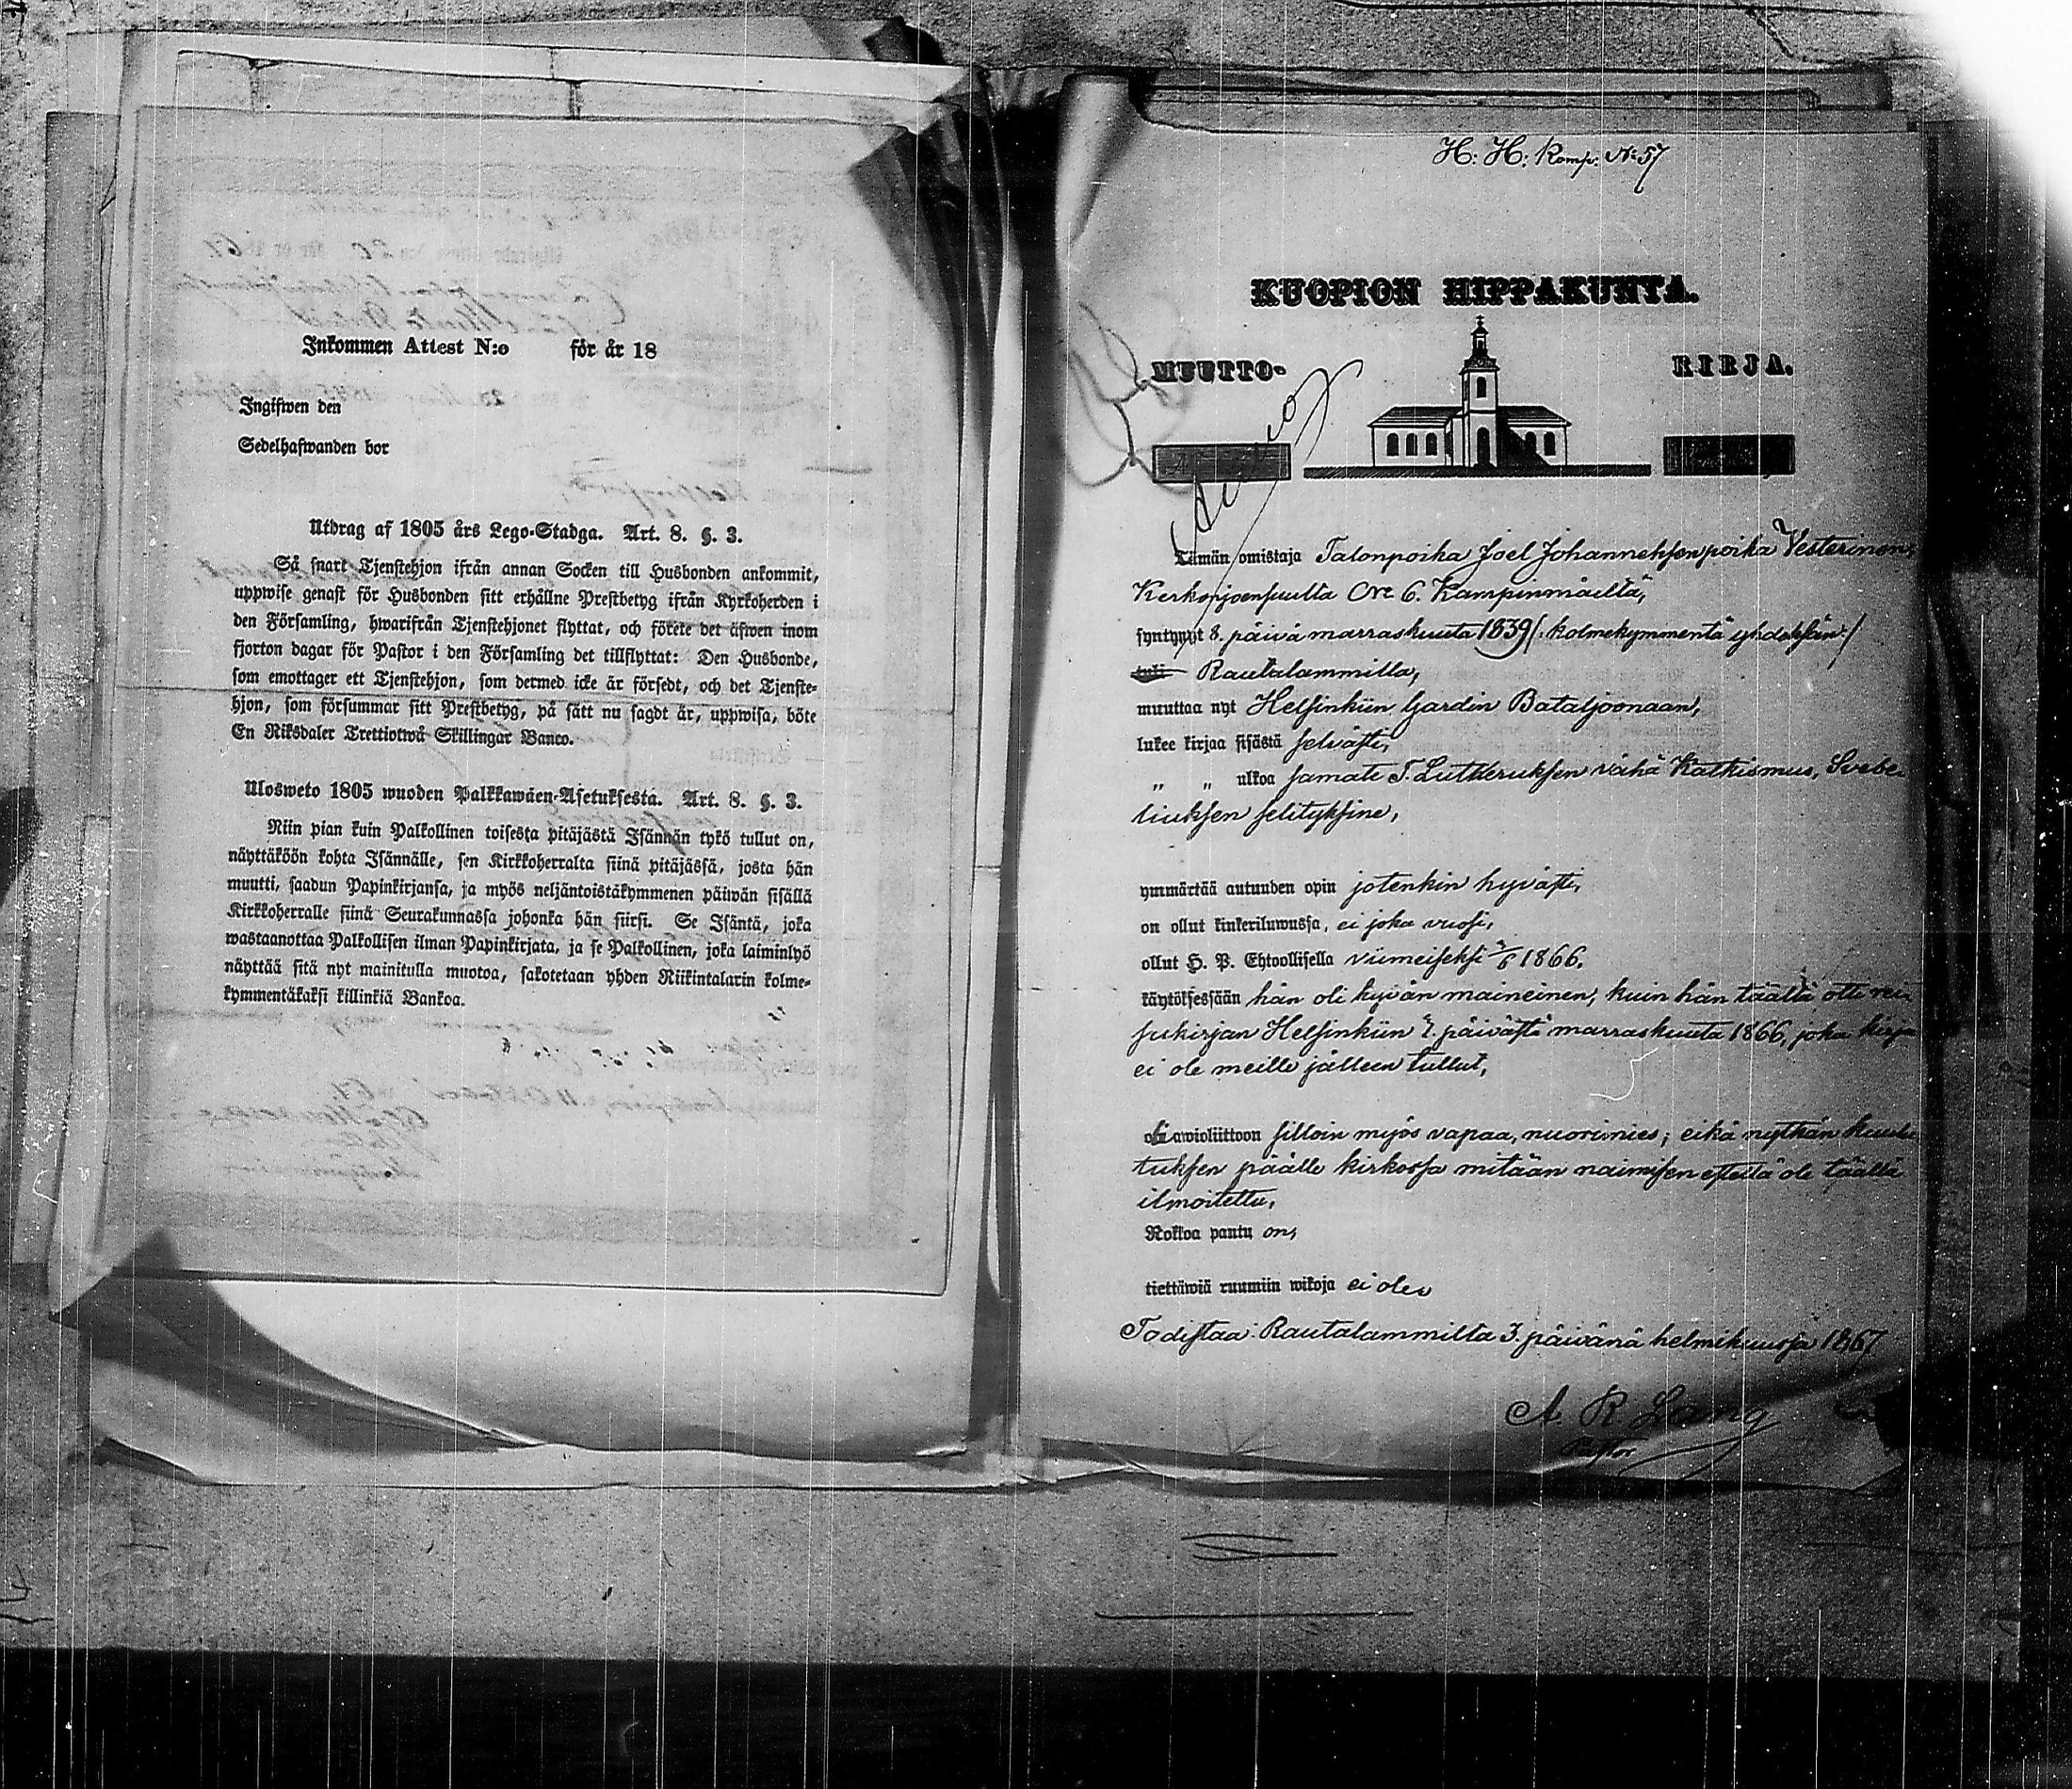 Inkommen Attest N:o för år 18
Ingifwen den
Sedelhafwanden bor
Utdrag af 1805 års Lego-Stadga. Art. 8. §. 3.
Så snart Tjenstehjon ifrån annan Socken till Husbonden ankommit,
uppwise genast för Husbonden sitt erhållne Prestbetyg ifrån Kyrkoherden i
den Församling, hwarifrån Tjenstehjonet flyttat, och förete det äfwen inom
fjorton dagar för Pastor i den Församling det tillflyttat: Den Husbonde,
som emottager ett Tjenstehjon, som dermed icke är försedt, och det Tjenste-
hjon, som försummar sitt Prestbetyg, på sätt nu sagdt är, uppwisa, böte
En Riksdaler Trettiotwå Skillingar Banco.
Ulosweto 1805 wuoden Palkkawäen-Asetuksesta. Art. 8. §. 3.
Niin pian kuin Palkollinen toisesta pitäjästä Isännän tykö tullut on,
näyttäköön kohta Isännälle, sen Kirkkoherralta siinä pitäjässä, josta hän
muutti, saadun Papinkirjansa, ja myös neljäntoistakymmenen päiwän sisällä
Kirkkoherralle siinä Seurakunnassa johonka hän siirsi. Se Isäntä, joka
wastaanottaa Palkollisen ilman Papinkirjata, ja se Palkollinen, joka laiminlyö
näyttää sitä nyt mainitulla muotoa, sakotetaan yhden Riikintalarin kolme-
kymmentäkaksi killinkiä Bankoa.
H: H: Komp: No 57
KUOPION HIPPAKUNTA.
MUUTTO- KIRJA.
Tämän omistaja Talonpoika Joel Johanneksenpoika Vesterinen,
Kerkonjoensuulta No 6. Kampinmäeltä,
syntynyt 8. päivä marraskuuta 1839 /: kolmekymmentä yhdeksän :/
tuli Rautalammilla,
muuttaa nyt Helsinkiin Gardin Bataljoonaan,
lukee kirjaa sisästä selvästi,
" " ulkoa samate T. Lutheruksen vähä Katkismus, Svebe-
liuksen selityksine,
ymmärtää autuuden opin jotenkin hyvästi,
on ollut kinkeriluwussa, ei joka vuosi,
ollut H. P. Ehtoollisella viimeiseksi 1866.
käytöksessään hän oli hyvän maineinen, kuin hän täältä otti rei-
sukirjan Helsinkiin päivästä marraskuuta 1866, joka kirja
ei ole meille jälleen tullut,
oli awioliittoon silloin myös vapaa, nuorimies; eikä nytkän kuulu
tuksen päälle kirkossa mitään naimisen estettä ole täällä
ilmoitettu,
Rokkoa pantu on,
tiettäwiä ruumiin wikoja ei ole
Todistaa: Rautalammilta 3. päivänä helmikuussa 1867
A. R. Lang
Pastor